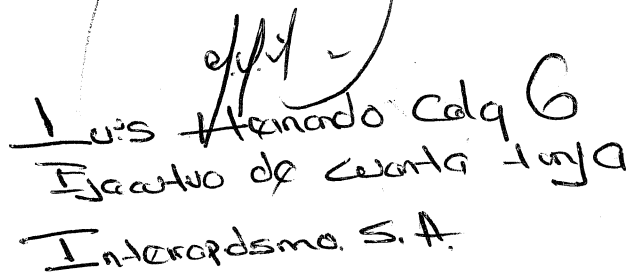 Luis Hernando Cely G
Ejecutivo de cuenta tunja
Interrapidisimo. S.A.